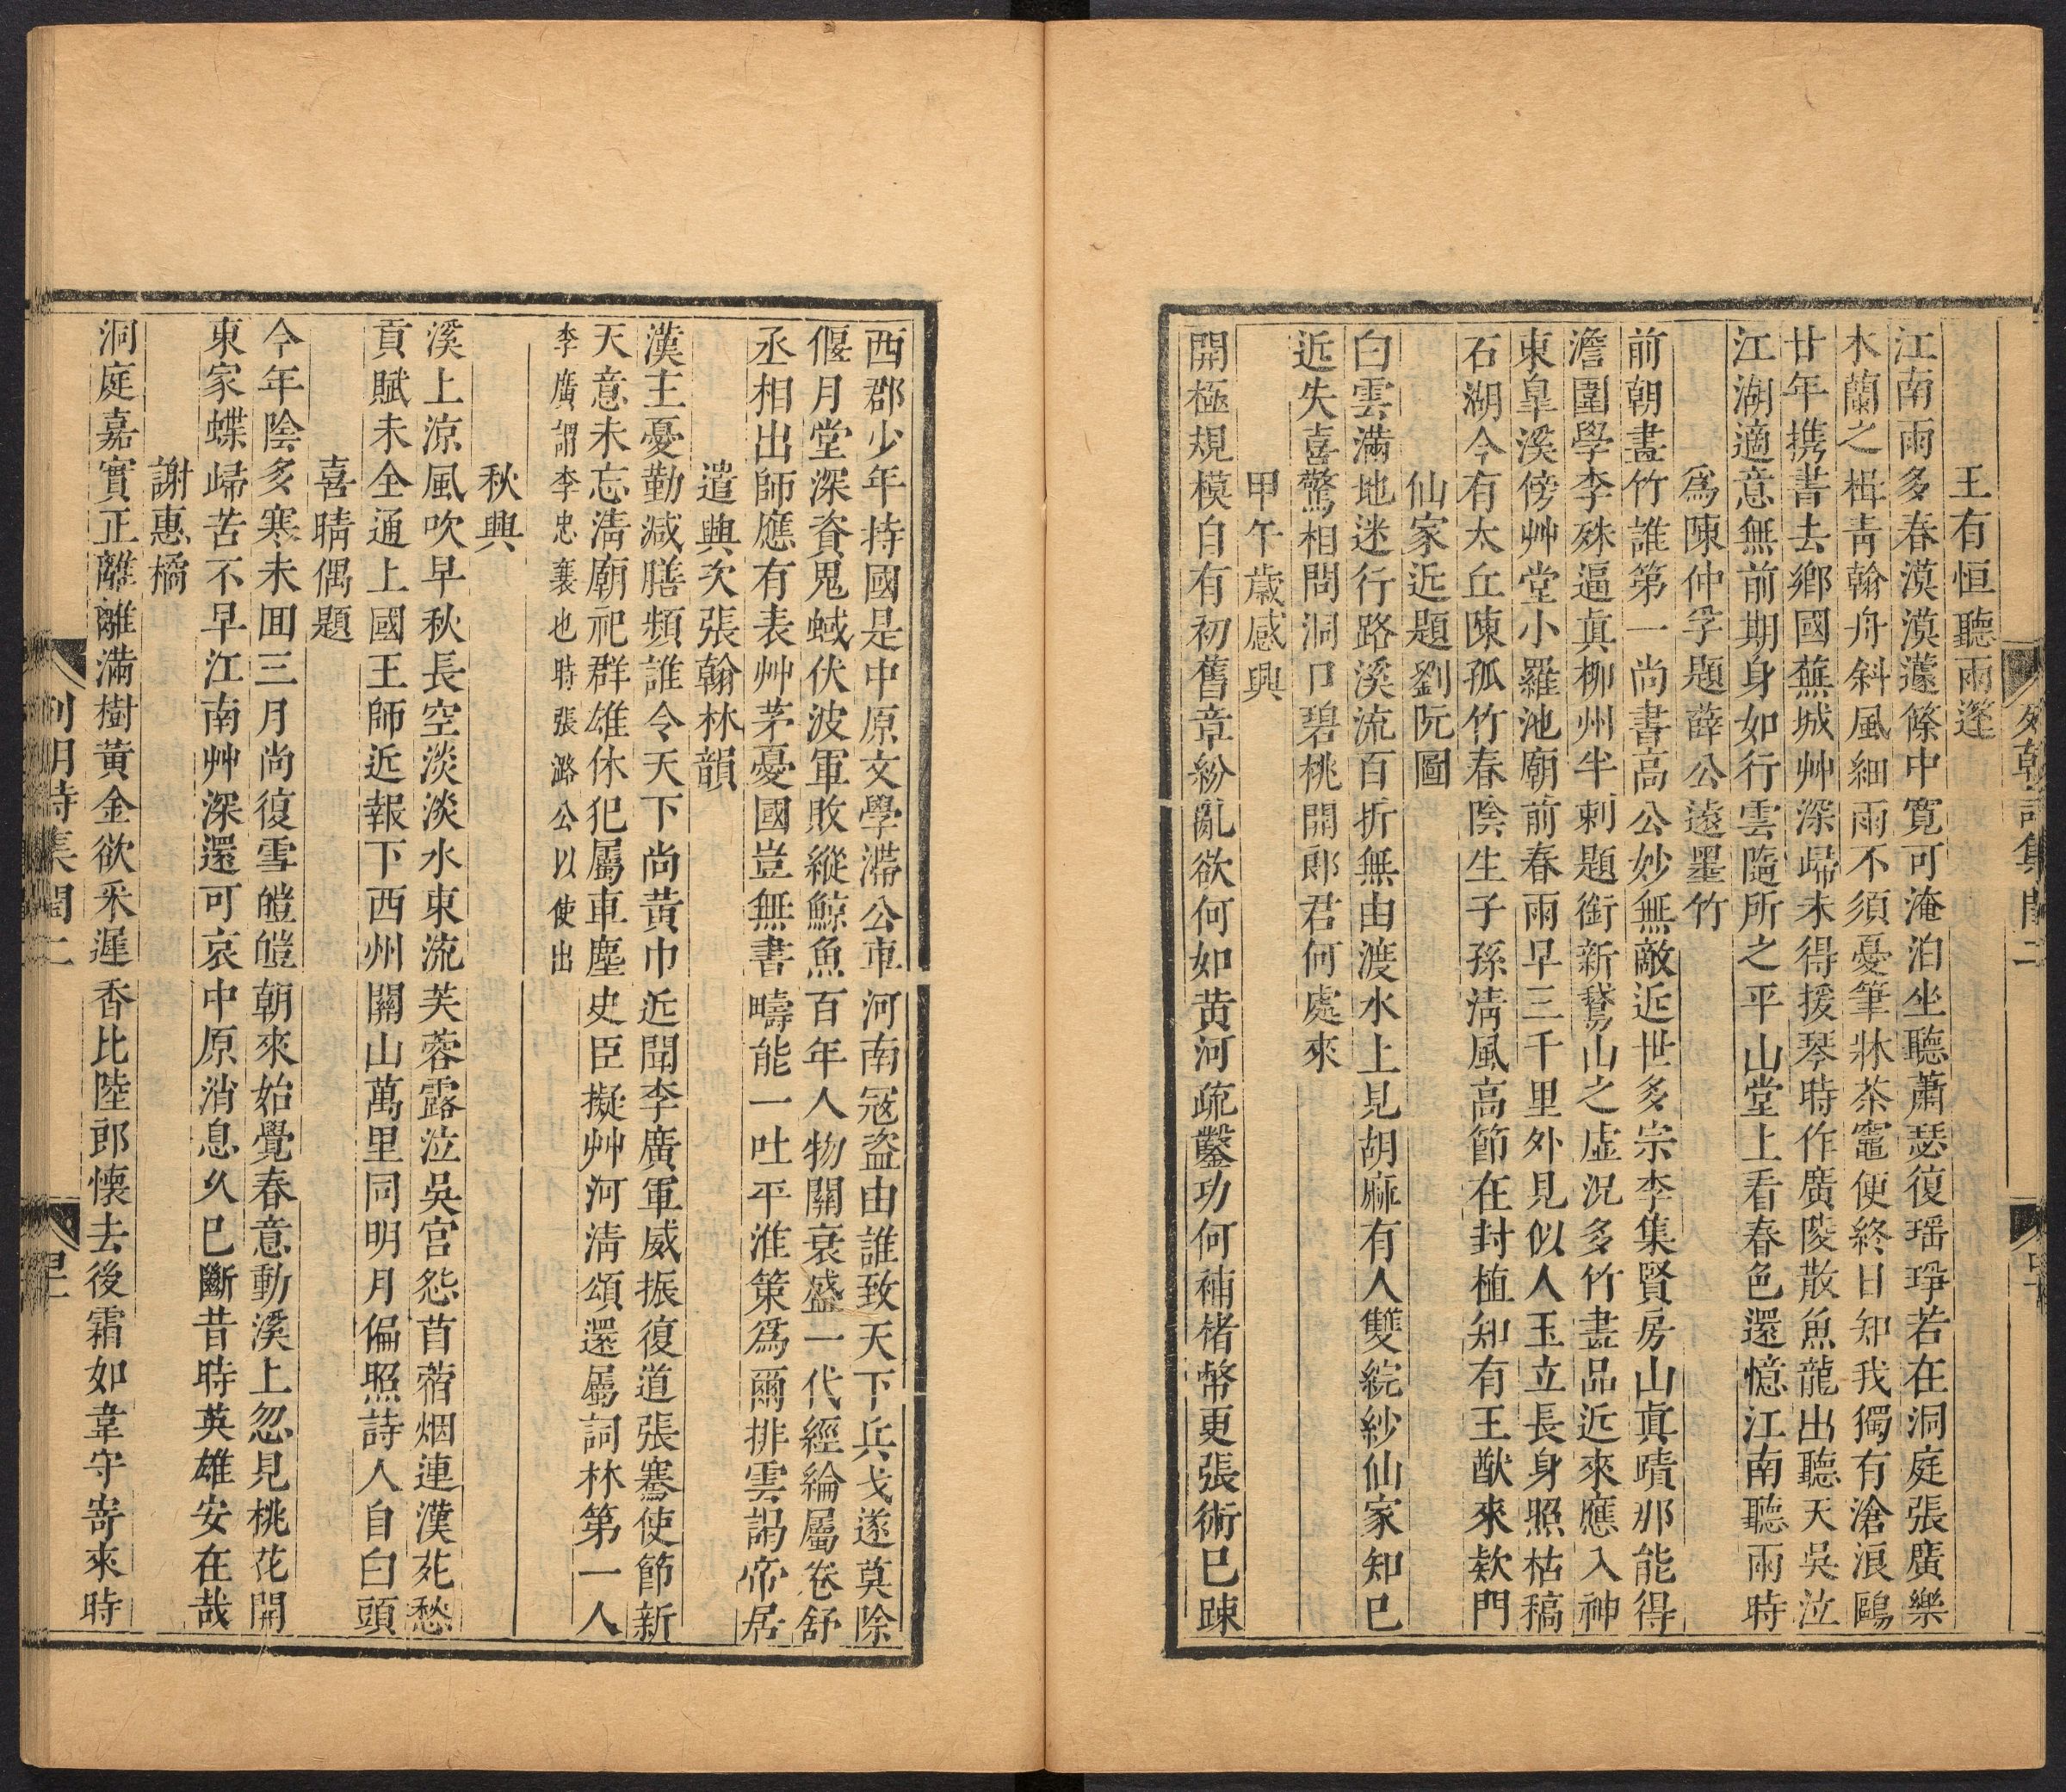 王有恒聽雨篷
江南雨多春漠漠蘧篨中寬可淹泊坐聽蕭瑟復瑶琤若在洞庭張廣樂
木蘭之楫青翰舟斜風細雨不須憂筆牀茶竈便終日知我獨有滄浪鷗
廿年携書去鄉國蕪城艸深歸未得援琴時作廣陵散魚龍出聽天吳泣
江湖適意無前期身如行雲隨所之平山堂上看春色還憶江南聽雨時
爲陳仲孚題薛公遠墨竹
前朝畫竹誰第一尚書高公妙無敵近世多宗李集賢房山真蹟那能得
澹圍學李殊逼真柳州半刺題銜新鵞山之虛況多竹畫品近來應入神
東皐溪傍艸堂小羅池廟前春雨早三千里外見似人玉立長身照枯稿
石湖今有太丘陳孤竹春陰生子孫淸風高節在封植知有王猷來欵門
仙家近題劉阮圖
白雲滿地迷行路溪流百折無由渡水上見胡麻有人雙綄紗仙家知已
近失喜驚相問洞口碧桃開郎君何處來
甲午歲感興
開極規模自有初舊章紛亂欲何如黄河疏鑿功何補楮幣更張術已踈
西郡少年持國是中原文學滯公車河南冦盜由誰致天下兵戈遂莫除
偃月堂深資鬼蜮伏波軍敗縱鯨魚百年人物關衰盛一代經綸屬卷舒
丞相出師應有表艸茅憂國豈無書疇能一吐平淮策爲爾排雲謁帝居
遣興次張翰林韻
漢主憂勤减膳頻誰令天下尚黃巾近聞李廣軍威振復道張騫使節新
天意未忘淸廟祀群雄休犯屬車塵史臣擬艸河淸頌還屬詞林第一人
李廣謂李忠襄也時張潞公以使出
秋興
溪上涼風吹早秋長空淡淡水東流芙蓉露泣吳宮怨苜蓿烟連漢苑愁
貢賦未全通上國王師近報下西州關山萬里同明月偏照詩人自白頭
喜晴偶題
今年陰多寒未囬三月尚復雪皚皚朝來始覺春意動溪上忽見桃花開
東家蝶歸苦不早江南艸深還可哀中原消息久已斷昔時英雄安在哉
謝惠橘
洞庭嘉實正離離滿樹黃金欲采遲香比陸郎懐去後霜如韋守寄來時